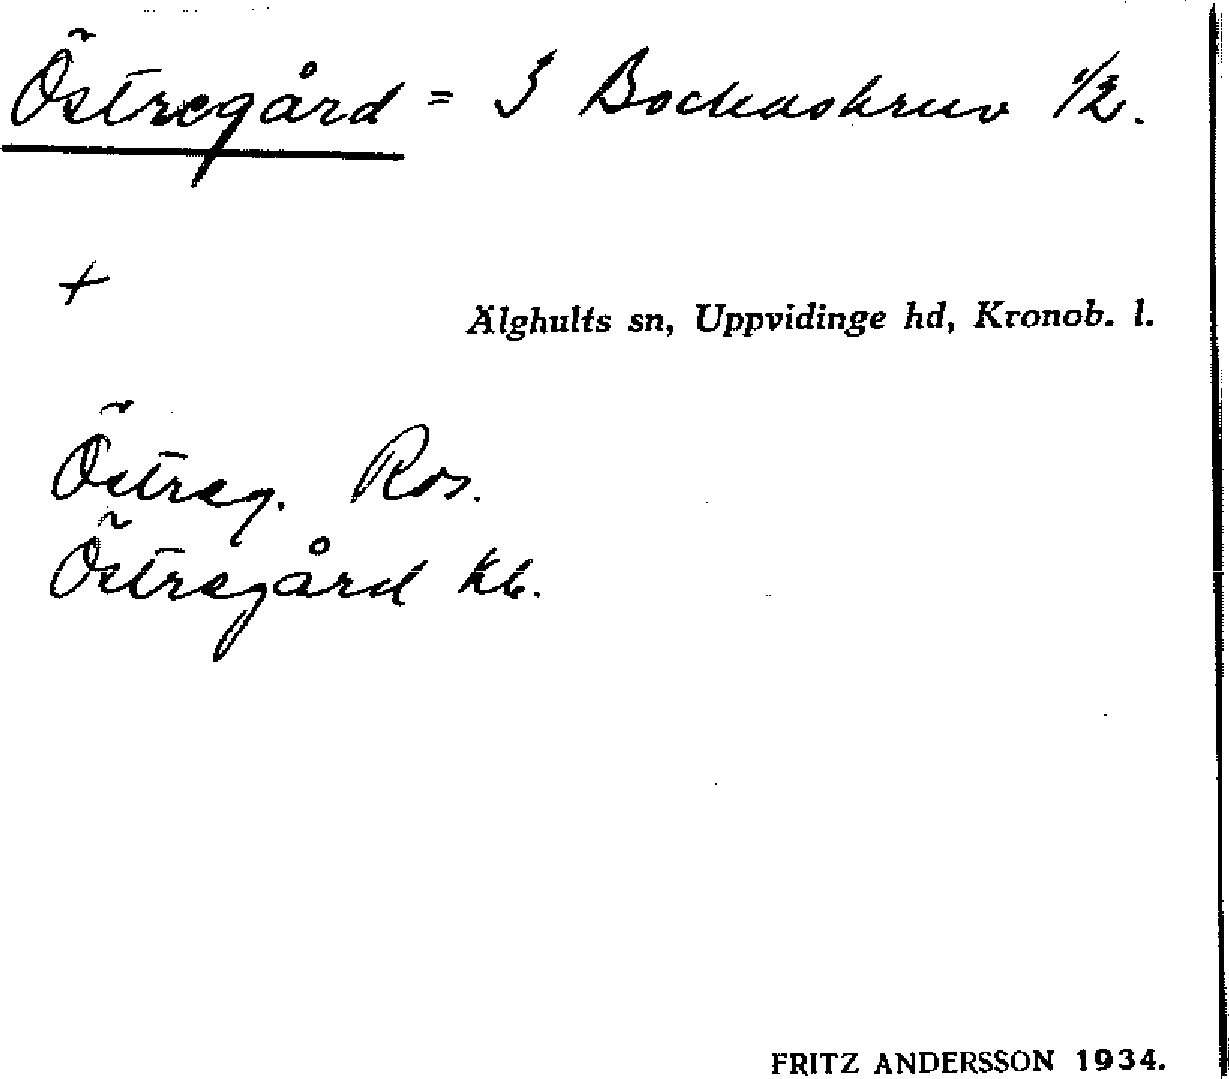 Östregård = S Bockaskruv 1/2.
+
Älghults sn, Uppvidinge hd, Kronob. l.
Östreg. Ros.
Östregård Kb.
FRITZ ANDERSSON 1934.